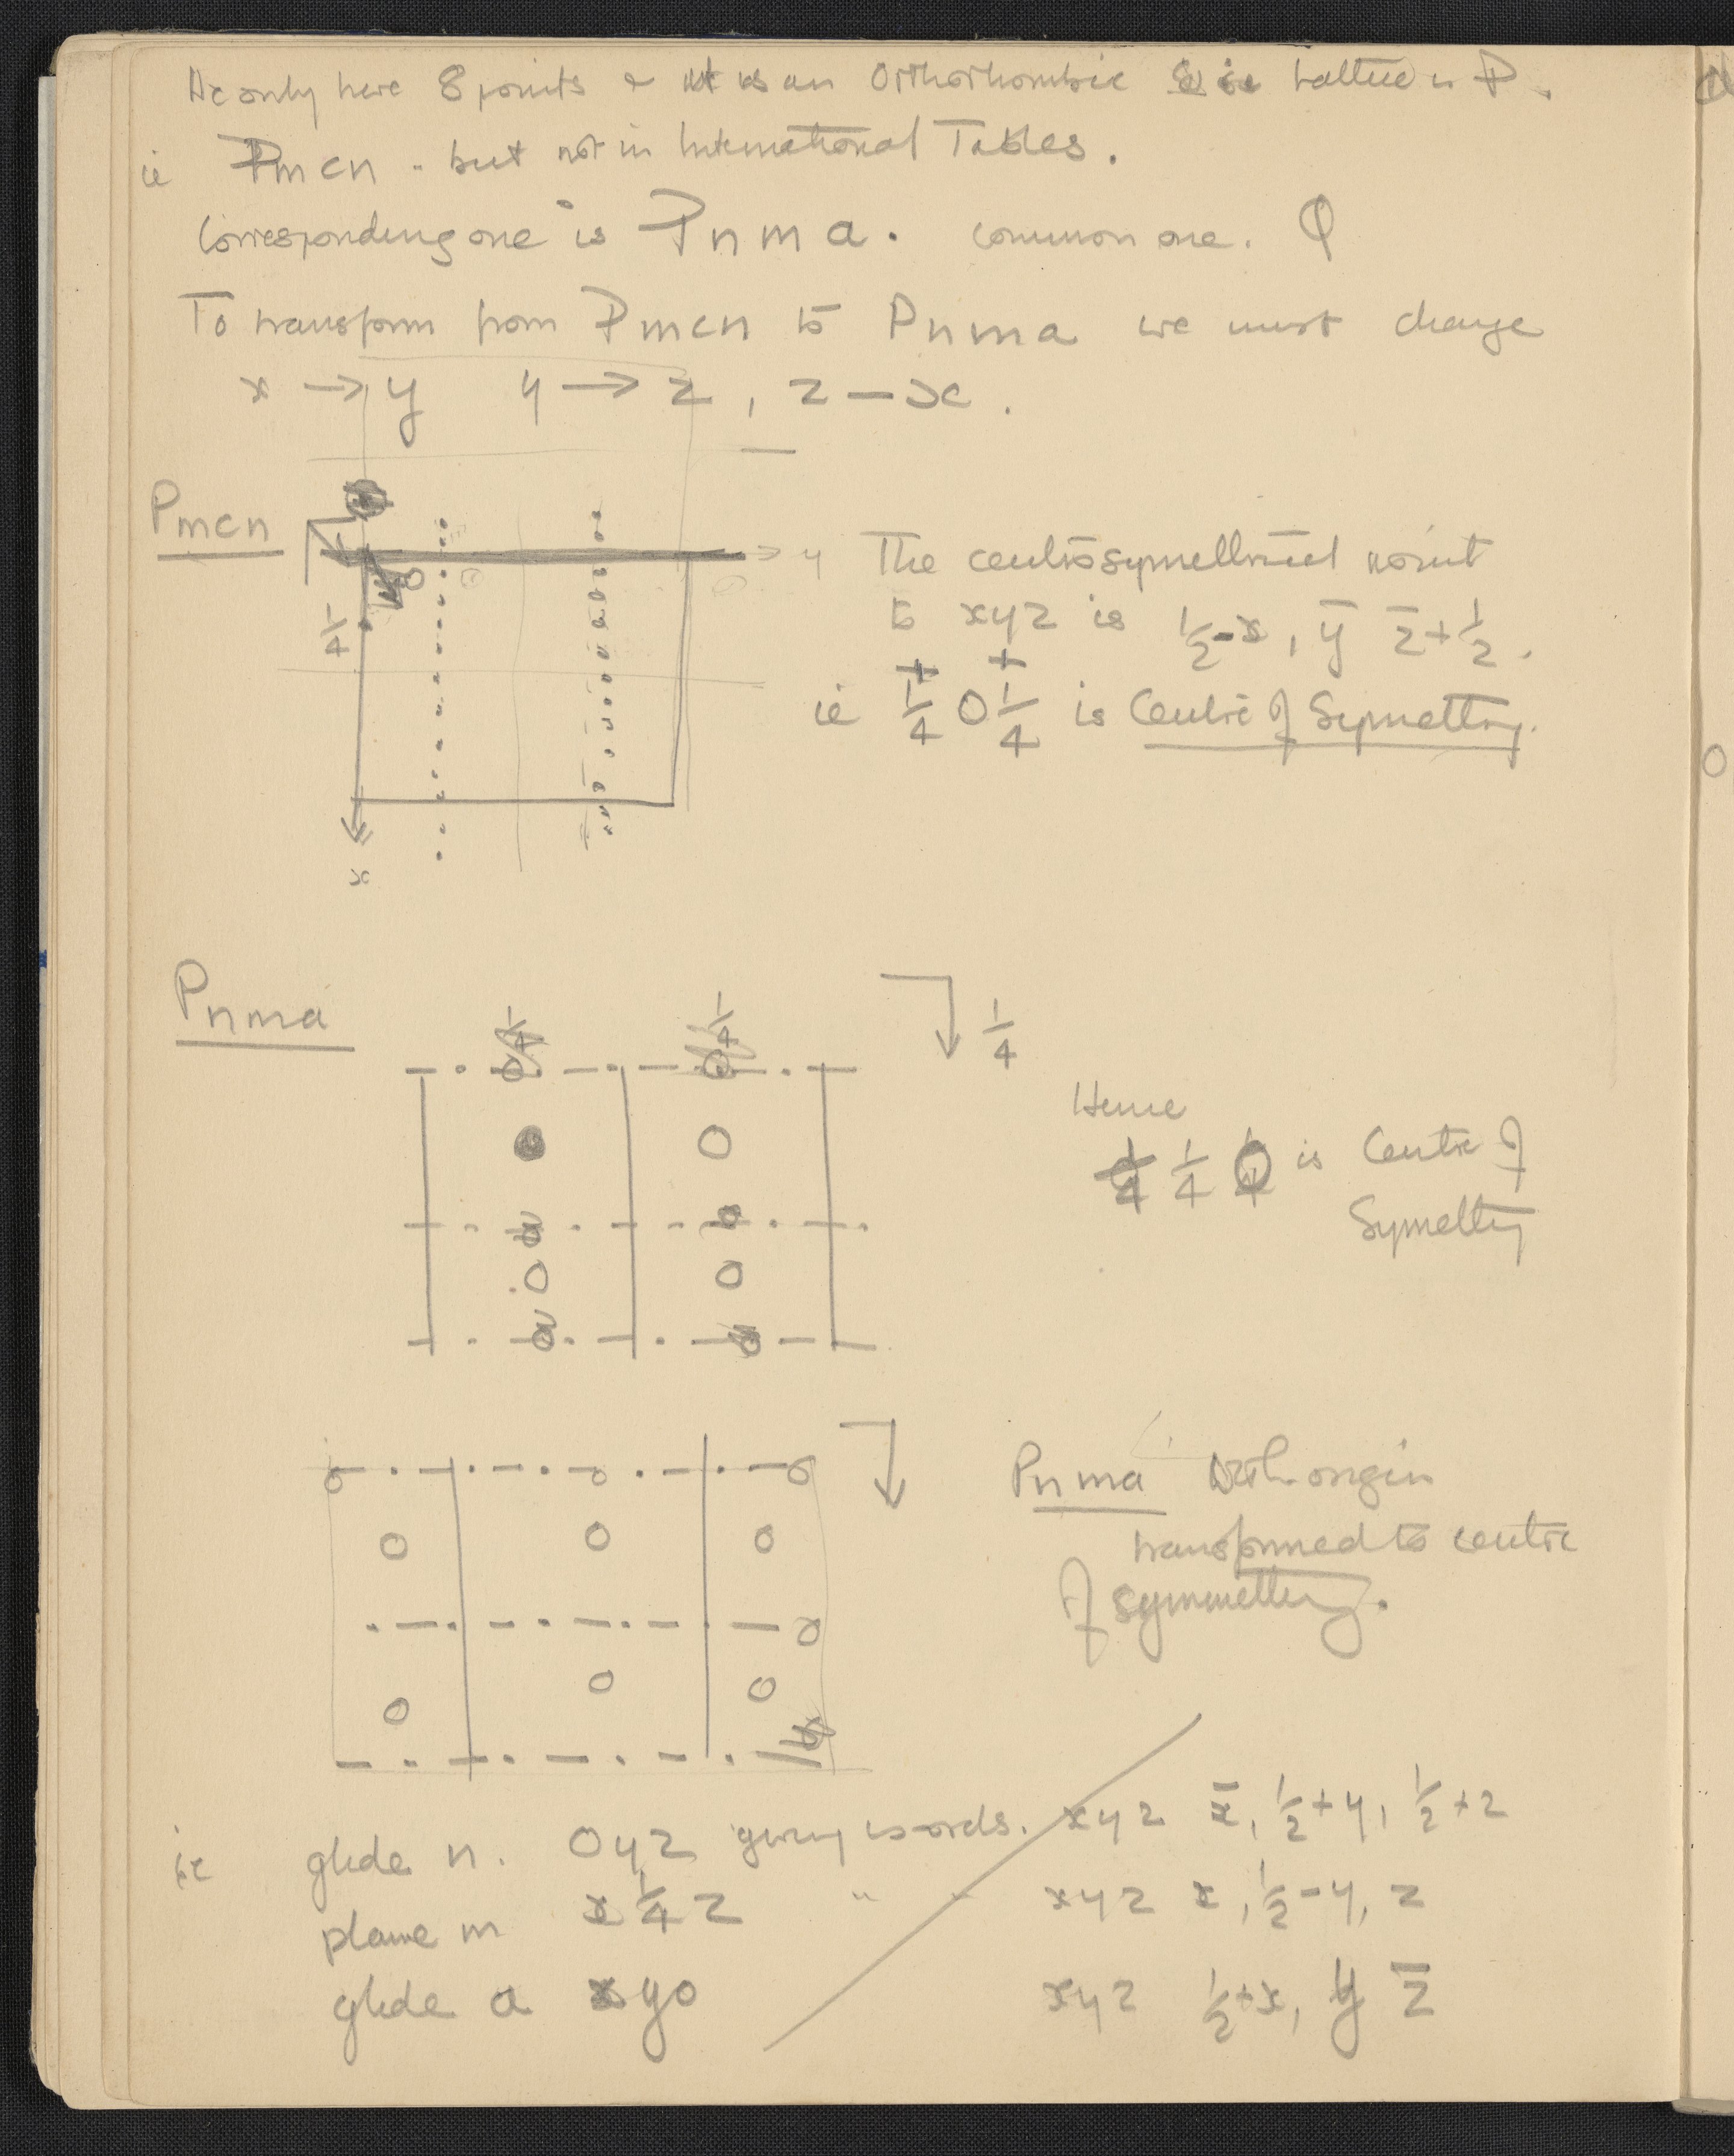 only have 8 points & it is an Orthorhombic lattice is P.
ie Pmcn - but not in International Tables.
Corresponding one is Pnma. common one.
To transform from Pmcn to Pnma we must change
x → y y → z, z — x.
Pmcn
y
1/4
x
The centrosymettrical point
to xyz is 1/2-x, ȳ z̄+1/2.
ie 1/4 0 1/4 is Centre of Symettry.
Pnma
1/4 1/4
1/4
Hence
1/4 1/4 0 is Centre of
Symettry
Pnma with origin
transformed to centre
of symmettry.
ie glide n. 0yz giving coords. xyz x̄, 1/2+y, 1/2+z
plane m x 1/4 z " " xyz x, 1/2-y, z
glide a xy0 xyz 1/2+x, y z̄